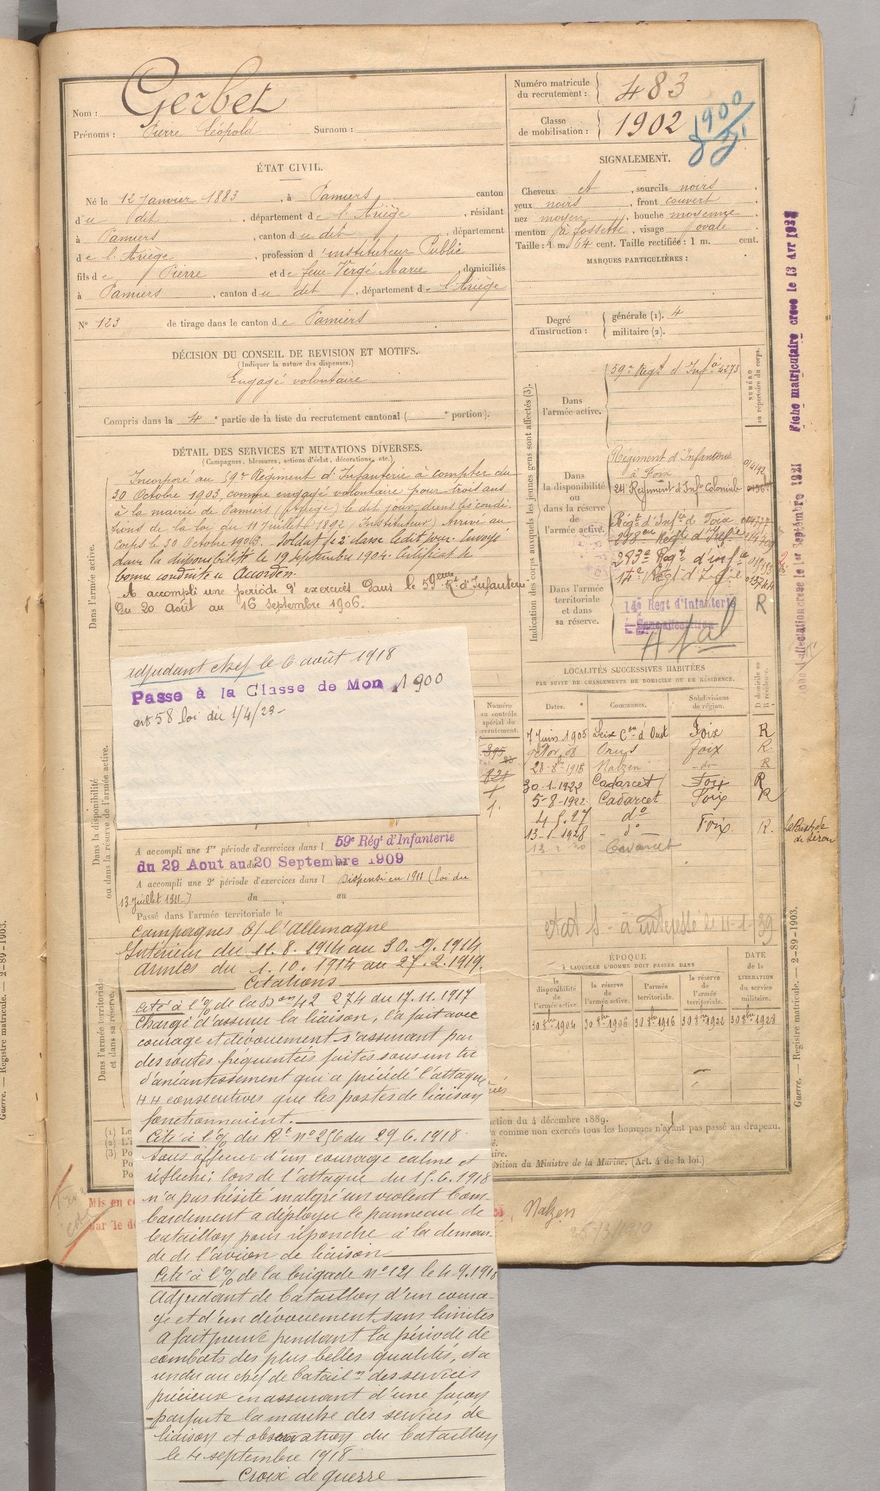 Nom : Gerbet
Prénoms : Pierre Léopold Surnom :
Numéro matricule du recrutement : 483
Classe de mobilisation : 1902
1900
ÉTAT CIVIL.
Né le 12 Janvier 1883, à Pamiers, canton
du dit, département de l'Ariège, résidant
à Pamiers, canton du dit, département
de l'Ariège, profession d'instituteur Public
fils de Pierre et de feue Vergé Marie, domiciliés
à Pamiers, canton du dit, département de l'Ariège
N° 123 de tirage dans le canton de Pamiers
SIGNALEMENT.
Cheveux et, sourcils noirs
yeux noirs, front couvert
nez moyen, bouche moyenne
menton à fossette, visage ovale
Taille : 1 m. 64 cent. Taille rectifiée : 1 m. cent.
MARQUES PARTICULIÈRES :
Degré d'instruction : générale (1). 4
militaire (2).
DÉCISION DU CONSEIL DE REVISION ET MOTIFS.
(Indiquer la nature des dispenses.)
Engagé volontaire
Compris dans la 4e partie de la liste du recrutement cantonal ( e portion).
DÉTAIL DES SERVICES ET MUTATIONS DIVERSES.
(Campagnes, blessures, actions d'éclat, décorations, etc.)
Dans l'armée active.
Incorporé au 59e Régiment d'Infanterie à compter du
30 Octobre 1903, comme engagé volontaire pour trois ans
à la mairie de Pamiers (Ariège) le dit jour, dans les condi
tions de la loi du 11 Juillet 1892 (Instituteur) Arrivé au
corps le 30 Octobre 1903. Soldat de 2e classe le dit jour. Envoyé
dans la disponibilité le 19 septembre 1904. Certificat de
bonne conduite "Accordé".
A accompli une période d'exercices dans le 59eme Rt d'Infanterie
du 20 août au 16 septembre 1906.
adjudant chef le 6 août 1918
Passé à la Classe de Mon 1900
art 58 loi du 1/4/23-
Dans la disponibilité ou dans la réserve de l'armée active.
A accompli une 1re période d'exercices dans l 59e Régt d'Infanterie
du 29 Aout au 20 Septembre 1909
A accompli une 2e période d'exercices dans l Dispensé en 1911 (loi du
13 juillet 1911.) du au
Passé dans l'armée territoriale le
Dans l'armée territoriale et dans sa réserve.
Campagnes c/ l'Allemagne
Intérieur du 11.8.1914 au 30.9.1914
Armées du 1.10.1914 au 27.2.1919.
Citations
Cité à l'% de la Don 42 274 du 17.11.1917
Chargé d'assurer la liaison, l'a fait avec
courage et dévouement s'assurant par
des routes fréquentées faites sous un tir
d'anéantissement qui a précédé l'attaque
44 consecutives que les postes de liaison
fonctionnaient.
Cité à l'% du Rt n° 256 du 29.6.1918
Sous officier d'un courage calme et
réfléchi lors de l'attaque du 15.6.1918
n'a pas hésité malgré un violent bom
bardement a déployer le panneau de
bataillon pour répondre à la deman
de de l'avion de liaison
Cité à l'% de la brigade n° 121 le 4.9.1918
Adjudant de bataillon d'un coura
ge et d'un dévouement sans limites
A fait preuve pendant la période de
combats des plus belles qualités, et a
rendu au chef de batailon des services
précieux en assurant d'une façon
parfaite la marche des services de
liaison et observation du bataillon
le 4 septembre 1918
Croix de guerre
Indication des corps auxquels les jeunes gens sont affectés (3).
NUMÉRO au répertoire du corps.
Dans l'armée active.
59e Régt d'Infie 4273
Dans la disponibilité ou dans la réserve de l'armée active.
Régiment d'Infanterie
à Foix
24 Régiment d'Infie Coloniale
Régt d'Infie de Foix
293e Régt d'Infie
14e Régt d'Infie
Dans l'armée territoriale et dans sa réserve.
14e Régt d'Infanterie
R
LOCALITÉS SUCCESSIVES HABITÉES
PAR SUITE DE CHANGEMENTS DE DOMICILE OU DE RÉSIDENCE.
Numéro au contrôle spécial du recrutement.
Dates. Communes. Subdivisions de région. D domicile ou R résidence.
7 Juin 1905 Seix Con d'Oust Foix R
Foix R
28-8-1916 Nalzen -do- R
30-1-1922 Cadarcet Foix R
5-8-1922 Cadarcet Foix R
4.5.27 do
13-1-1928 do Foix R. La Bastide de Sérou
Cadarcet
ÉPOQUE
À LAQUELLE L'HOMME DOIT PASSER DANS
DATE de la LIBÉRATION du service militaire.
la disponibilité de l'armée active. la réserve de l'armée active. l'armée territoriale. la réserve de l'armée territoriale.
30 8bre 1904 30 8bre 1906 30 8bre 1916 30 8bre 1922 30 8bre 1928
ction du 4 décembre 1889.
comme non exercés tous les hommes n'ayant pas passé au drapeau.
sition du Ministre de la Marine. (Art. 4 de la loi.)
Nalzen
Fiche matriculaire créée le 13 Avr
Guerre. — Registre matricule. — 2-89-1903.
Guerre. — Registre matricule. — 2-89-1903.